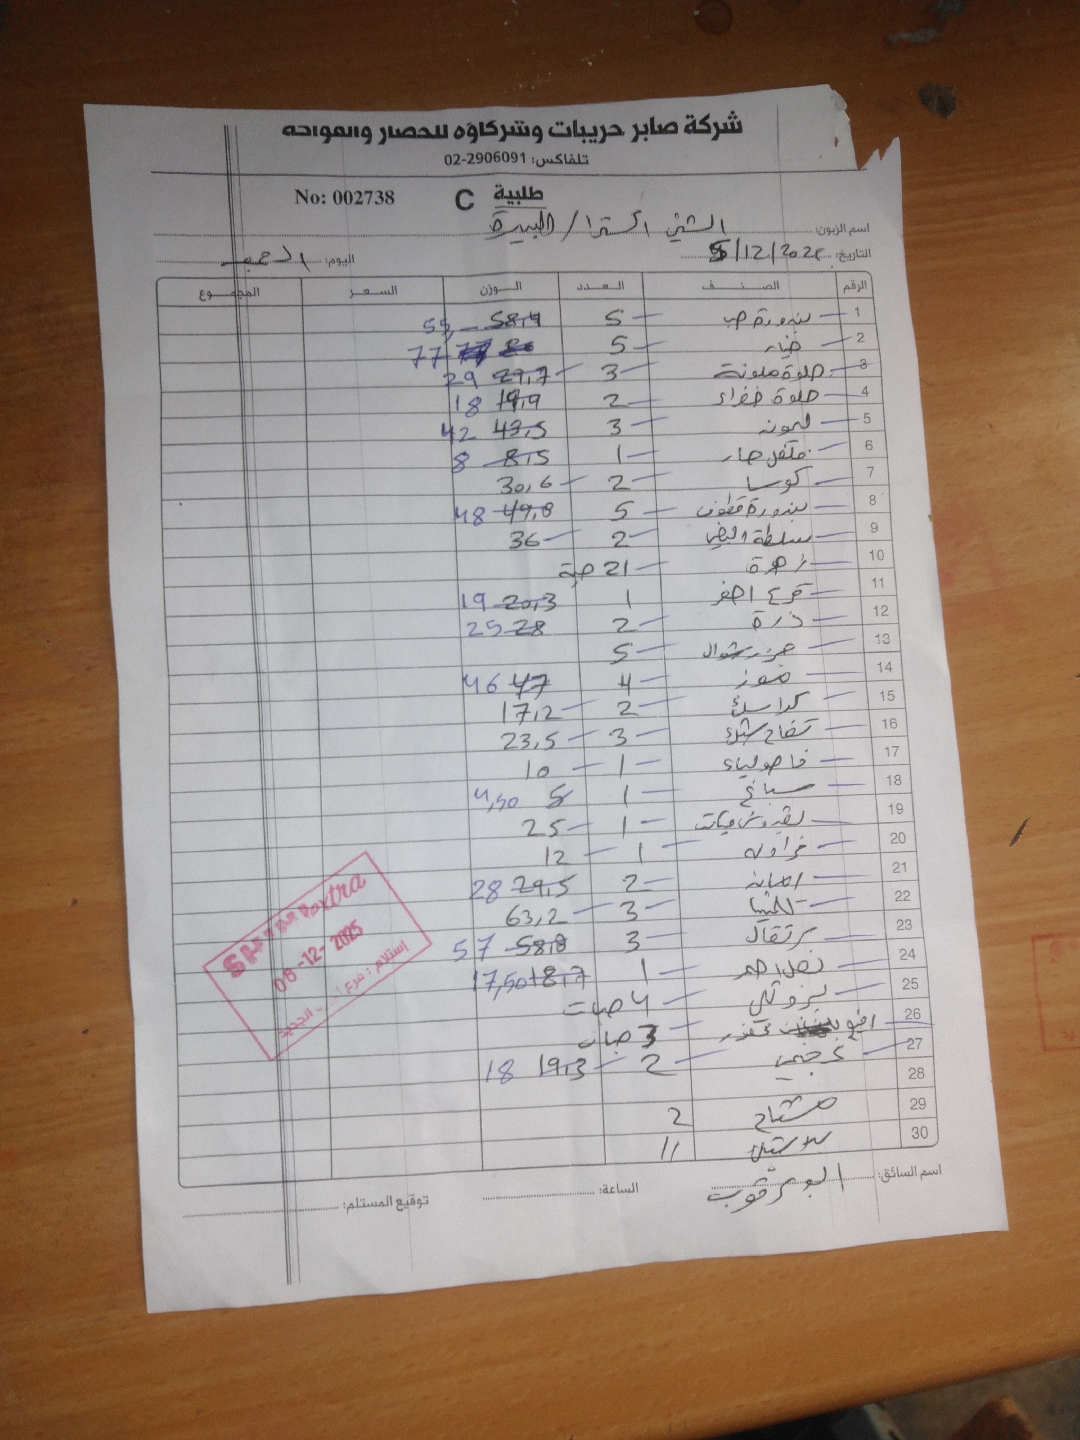 شركة صابر حريبات وشركاؤه للخضار والفواكه
تلفاكس: 02-2906091
No: 002738 C طلبية
اسم الزبون: الشني اكسترا / البيرة
التاريخ: 8/12/2025 اليوم:
الرقم الصنف العدد الوزن السعر المجموع
1 بندورة حب 5 58,4 55
2 خيار 5 77
3 حلوة ملونة 3 29,7 29
4 حلوة خضراء 2 19,9 18
5 ليمونه 3 43,5 42
6 فلفل حار 1 8,5 8
7 كوسا 2 30,6
8 بندورة قطوف 5 49,8 48
9 سلطة ابيض 2 36
10 زهرة 21 حبة
11 قرع اصفر 1 20,3 19
12 ذرة 2 28 25
13 جزر شوال 5
14 موز 4 47 46
15 2 17,2
16 تفاح 3 23,5
17 فاصولياء 1 10
18 سبانخ 1 5 4,50
19 1 25
20 فراولة 1 12
21 2 29,5 28
22 3 63,2
23 برتقال 3 58,8 57
24 بصل احمر 1 18,7 17,50
25 4 حبات
26 3 حبات
27 2 19,3 18
28
29 مشتاح 2
30 بلاستيك 11
اسم السائق: الساعة: توقيع المستلم:
extra
08-12-2025
استلام: فرع الجديد